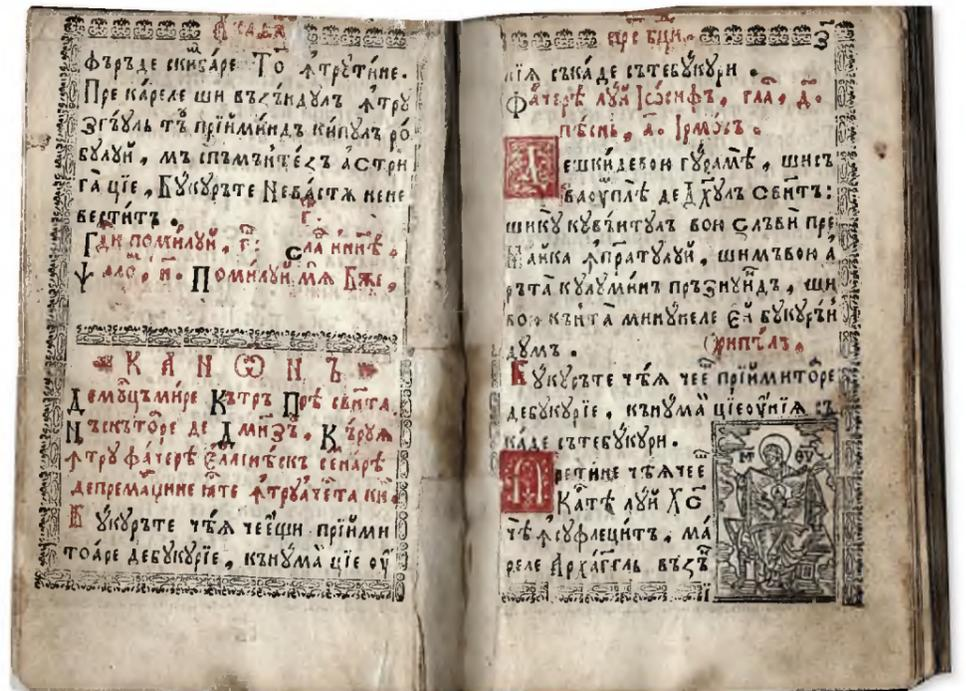 фъръде скибáре То ꙟтрꙋтине.
Пре кáреле ши въꙁъндул ꙟтрꙋ
Згъꙋль тъ прїимíндъ кипул рó
булуй, мъ спъмънтéꙁъ а стри
гà цїе, Бꙋкꙋръте Невáстѫ нене
веститъ.
Гд҇и помилꙋй, г҃: слáва и ни́нѣ,
Ѱало́, н҃. Поми́лꙋй мѧ Бж҃е,
КАНѠНЪ
Демꙋлцъми́ре Кътръ Прѣ свѫ́нта
Нъскътóре де Дмнꙁъ, Кърꙋꙗ
ꙟтрꙋ фáчерѣ
депремацине ꙗсте ꙟтрꙋачѣста ки
Бꙋкꙋръте чѣꙗ че ещи прїими
тоáре де бꙋкꙋрїе, кънꙋмаи цїе оу҆
нїꙗ съкáде сътебꙋкꙋри.
Фáчерѣ лꙋи Іѡсифъ, глáс, д҃.
пѣснь, а҃. Ірмóсъ.
Дешкидевою гꙋрамѣ, шисъ
ваоу҆мплѣ де Дхꙋл Свѫнтъ:
шикꙋ кꙋвѫнтꙋл вою Слъвѝ пре
Мáйка ꙟпъратꙋлꙋй, шимъвою а
ръта кꙋ лꙋминъ пръзнꙋиндъ, ши
вою кѫнта минꙋнеле Ей бꙋкꙋрѫн
дꙋмъ. Припѣлъ,
Бꙋкꙋръте чѣꙗ чеещи прїимитóре
дебꙋкꙋрїе, кънꙋмаи цїе оу҆нїꙗ съ
кáде сътебꙋкꙋри.
М҃Р Ѳ҃Ѵ
Претине чѣꙗ чеещи
Кáртѣ лꙋй Хс҃
чѣ ꙟсꙋфлецитъ, мá
реле Архáгг҃ль въꙁѫн